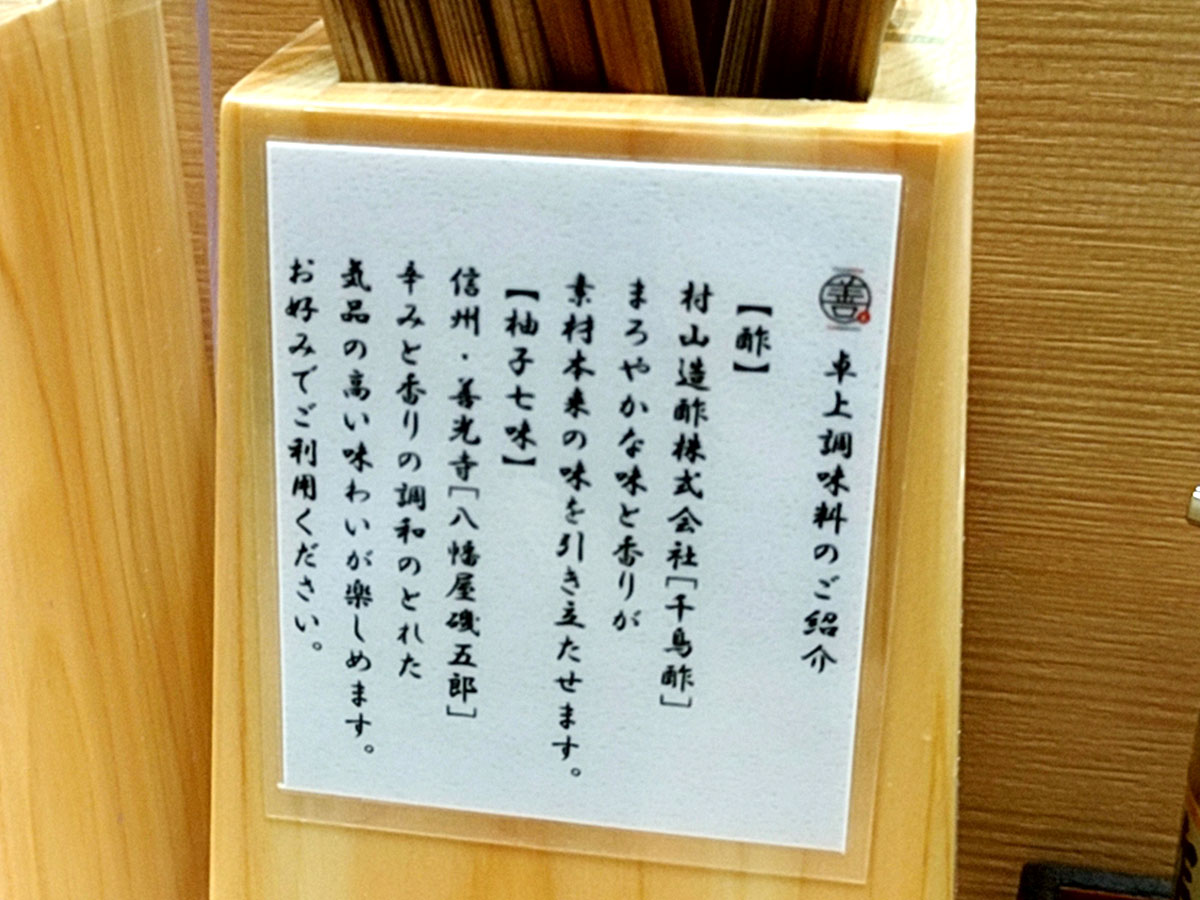 善 卓上調味料のご紹介
【酢】
村山造酢株式会社［千鳥酢］
まろやかな味と香りが
素材本来の味を引き立たせます。
【柚子七味】
信州・善光寺［八幡屋磯五郎］
辛みと香りの調和のとれた
気品の高い味わいが楽しめます。
お好みでご利用ください。